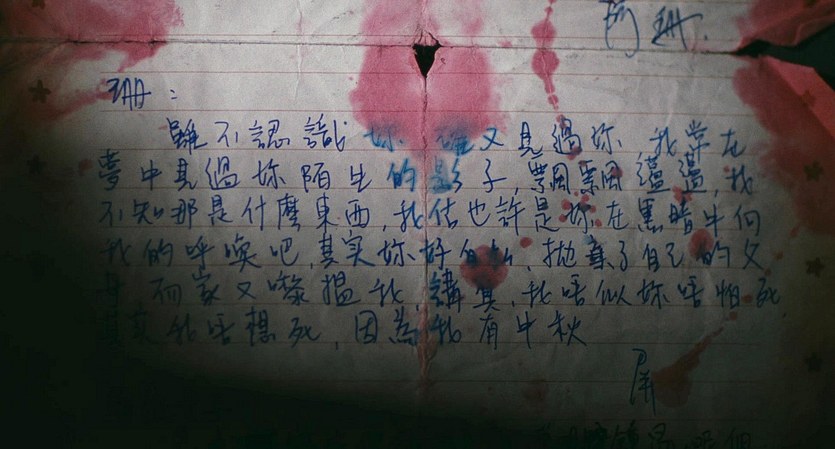 阿珊.
珊：
雖不認識妳 確又見過妳，我常在
夢中見過妳陌生的影子，飄飄盪盪，我
不知那是什麼東西，我估也許是妳在黑暗中向
我的呼喚吧，其实妳好自私，拋棄了自己的父
母 而家又嚟搵我，講真，我唔似妳唔怕死
其实我唔想死，因為我有中秋
屏